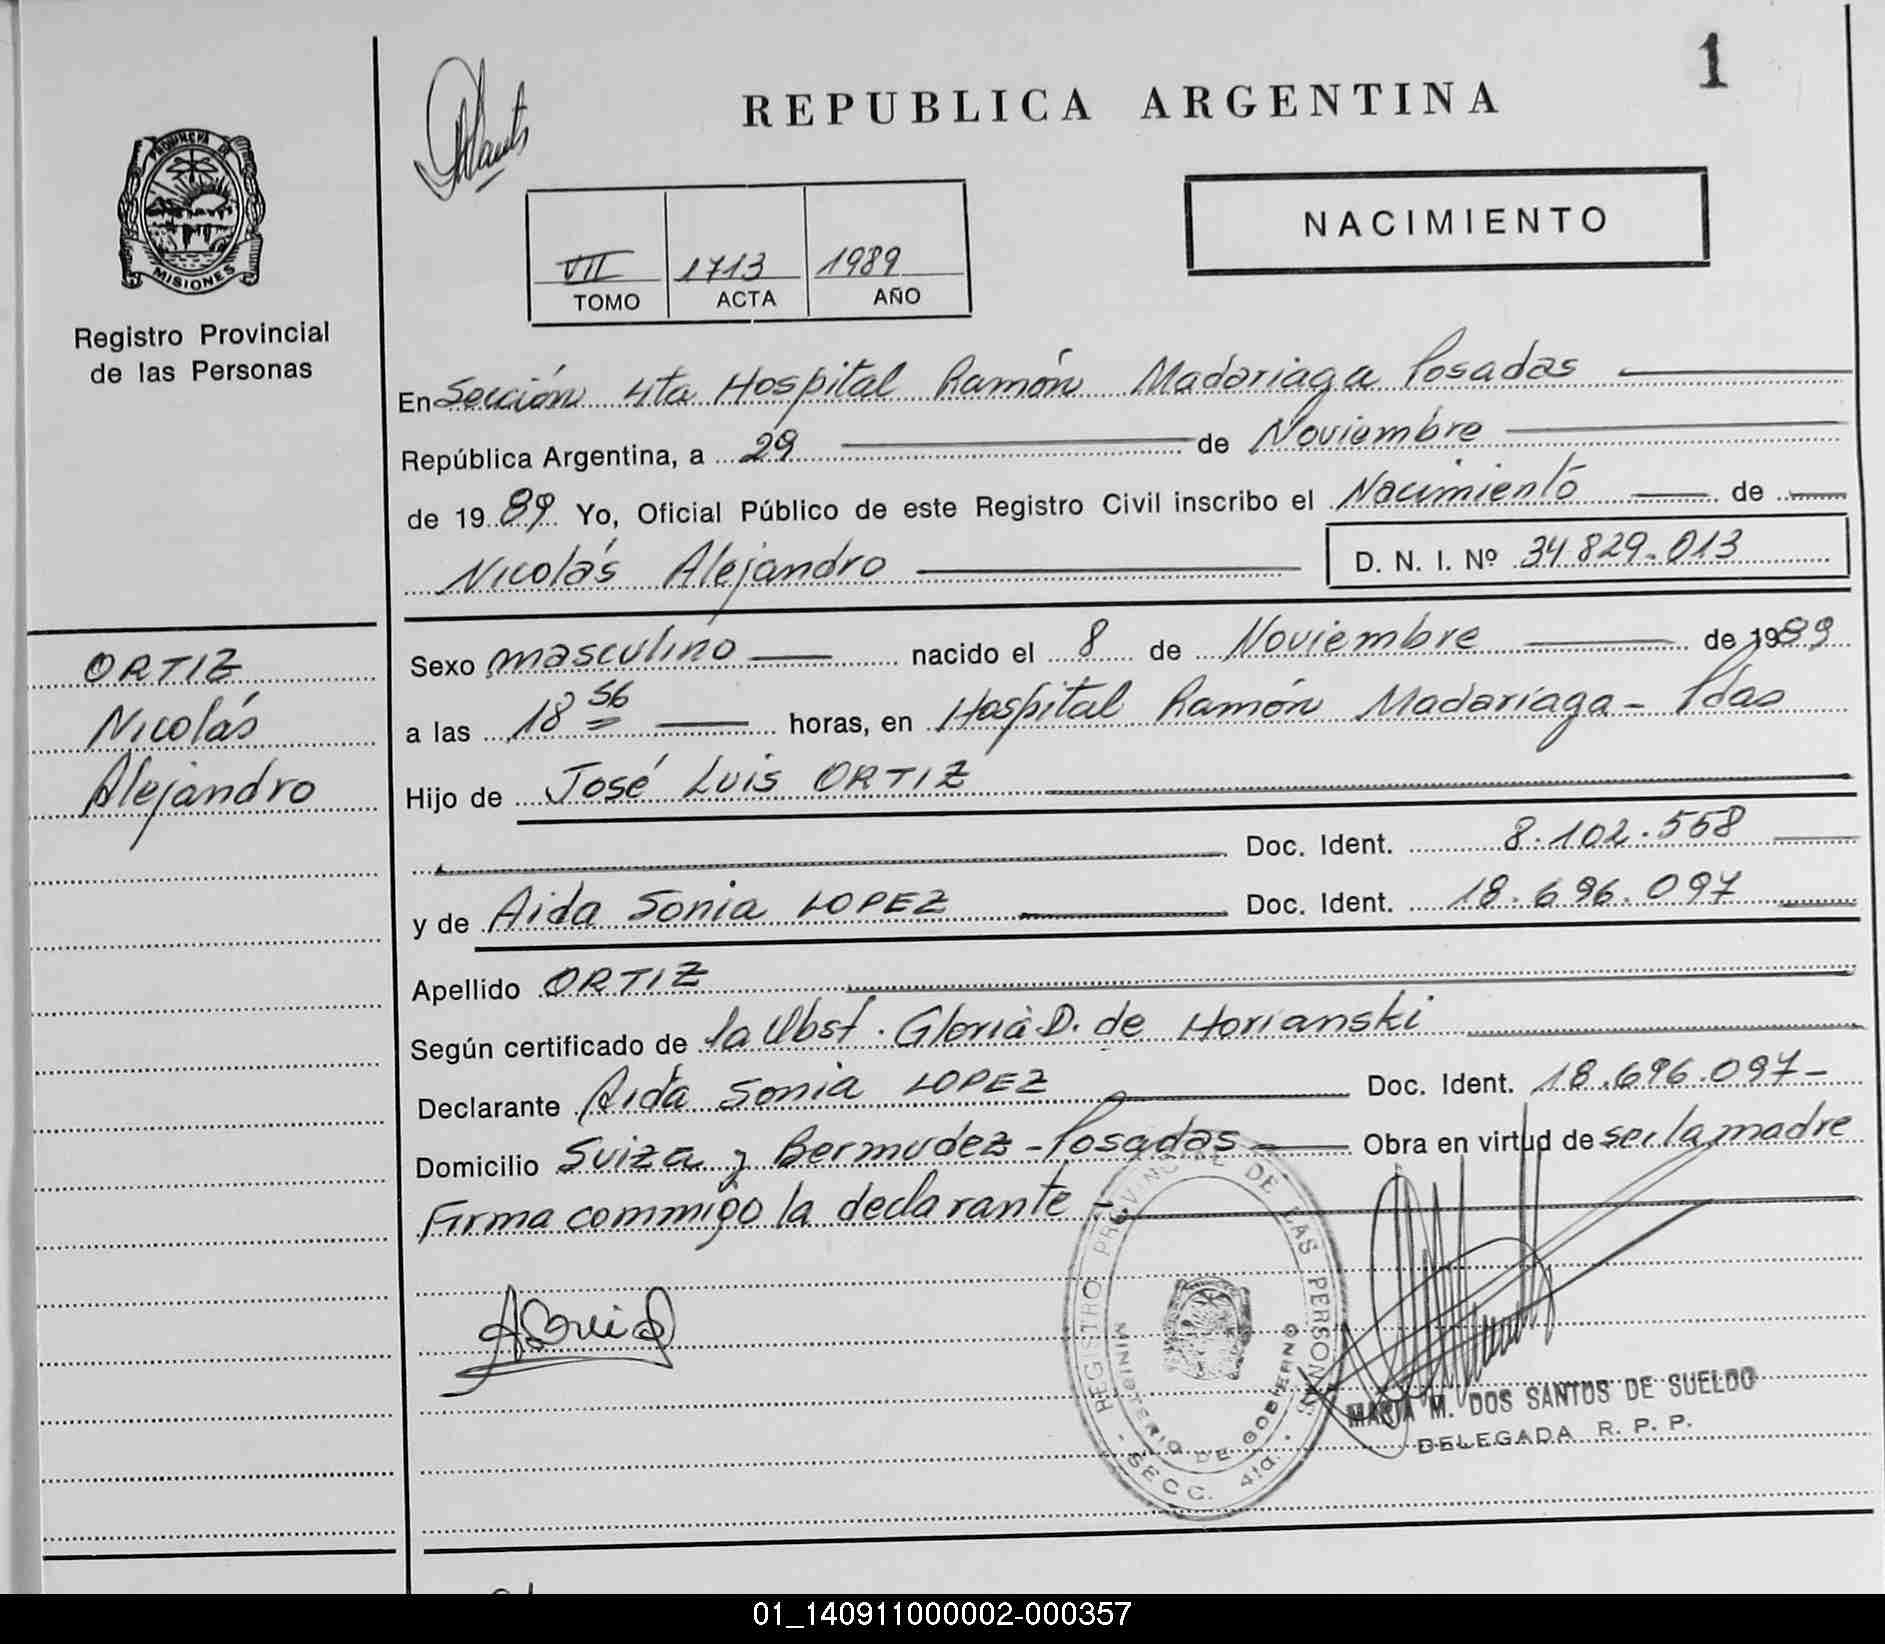 1
REPUBLICA ARGENTINA
PROVINCIA DE
MISIONES
Registro Provincial
de las Personas
NACIMIENTO
VII 1713 1989
TOMO ACTA AÑO
En Sección 4ta Hospital Ramón Madariaga Posadas
República Argentina, a 29 de Noviembre
de 1989 Yo, Oficial Público de este Registro Civil inscribo el Nacimiento de
Nicolás Alejandro D. N. I. Nº 34.829.013
ORTIZ
Nicolás
Alejandro
Sexo masculino nacido el 8 de Noviembre de 1989
a las 18 56 horas, en Hospital Ramón Madariaga - Pdas
Hijo de José Luis ORTIZ
Doc. Ident. 8.102.558
y de Aida Sonia LOPEZ Doc. Ident. 18.696.097
Apellido ORTIZ
Según certificado de la Obst. Gloria D. de Horianski
Declarante Aida Sonia LOPEZ Doc. Ident. 18.696.097-
Domicilio Suiza y Bermudez - Posadas Obra en virtud de ser la madre
Firma commigo la declarante -
REGISTRO PROVINCIAL DE LAS PERSONAS
MINISTERIO DE GOBIERNO
- SECC. 4ta. -
MARIA M. DOS SANTOS DE SUELDO
DELEGADA R. P. P.
01_140911000002-000357